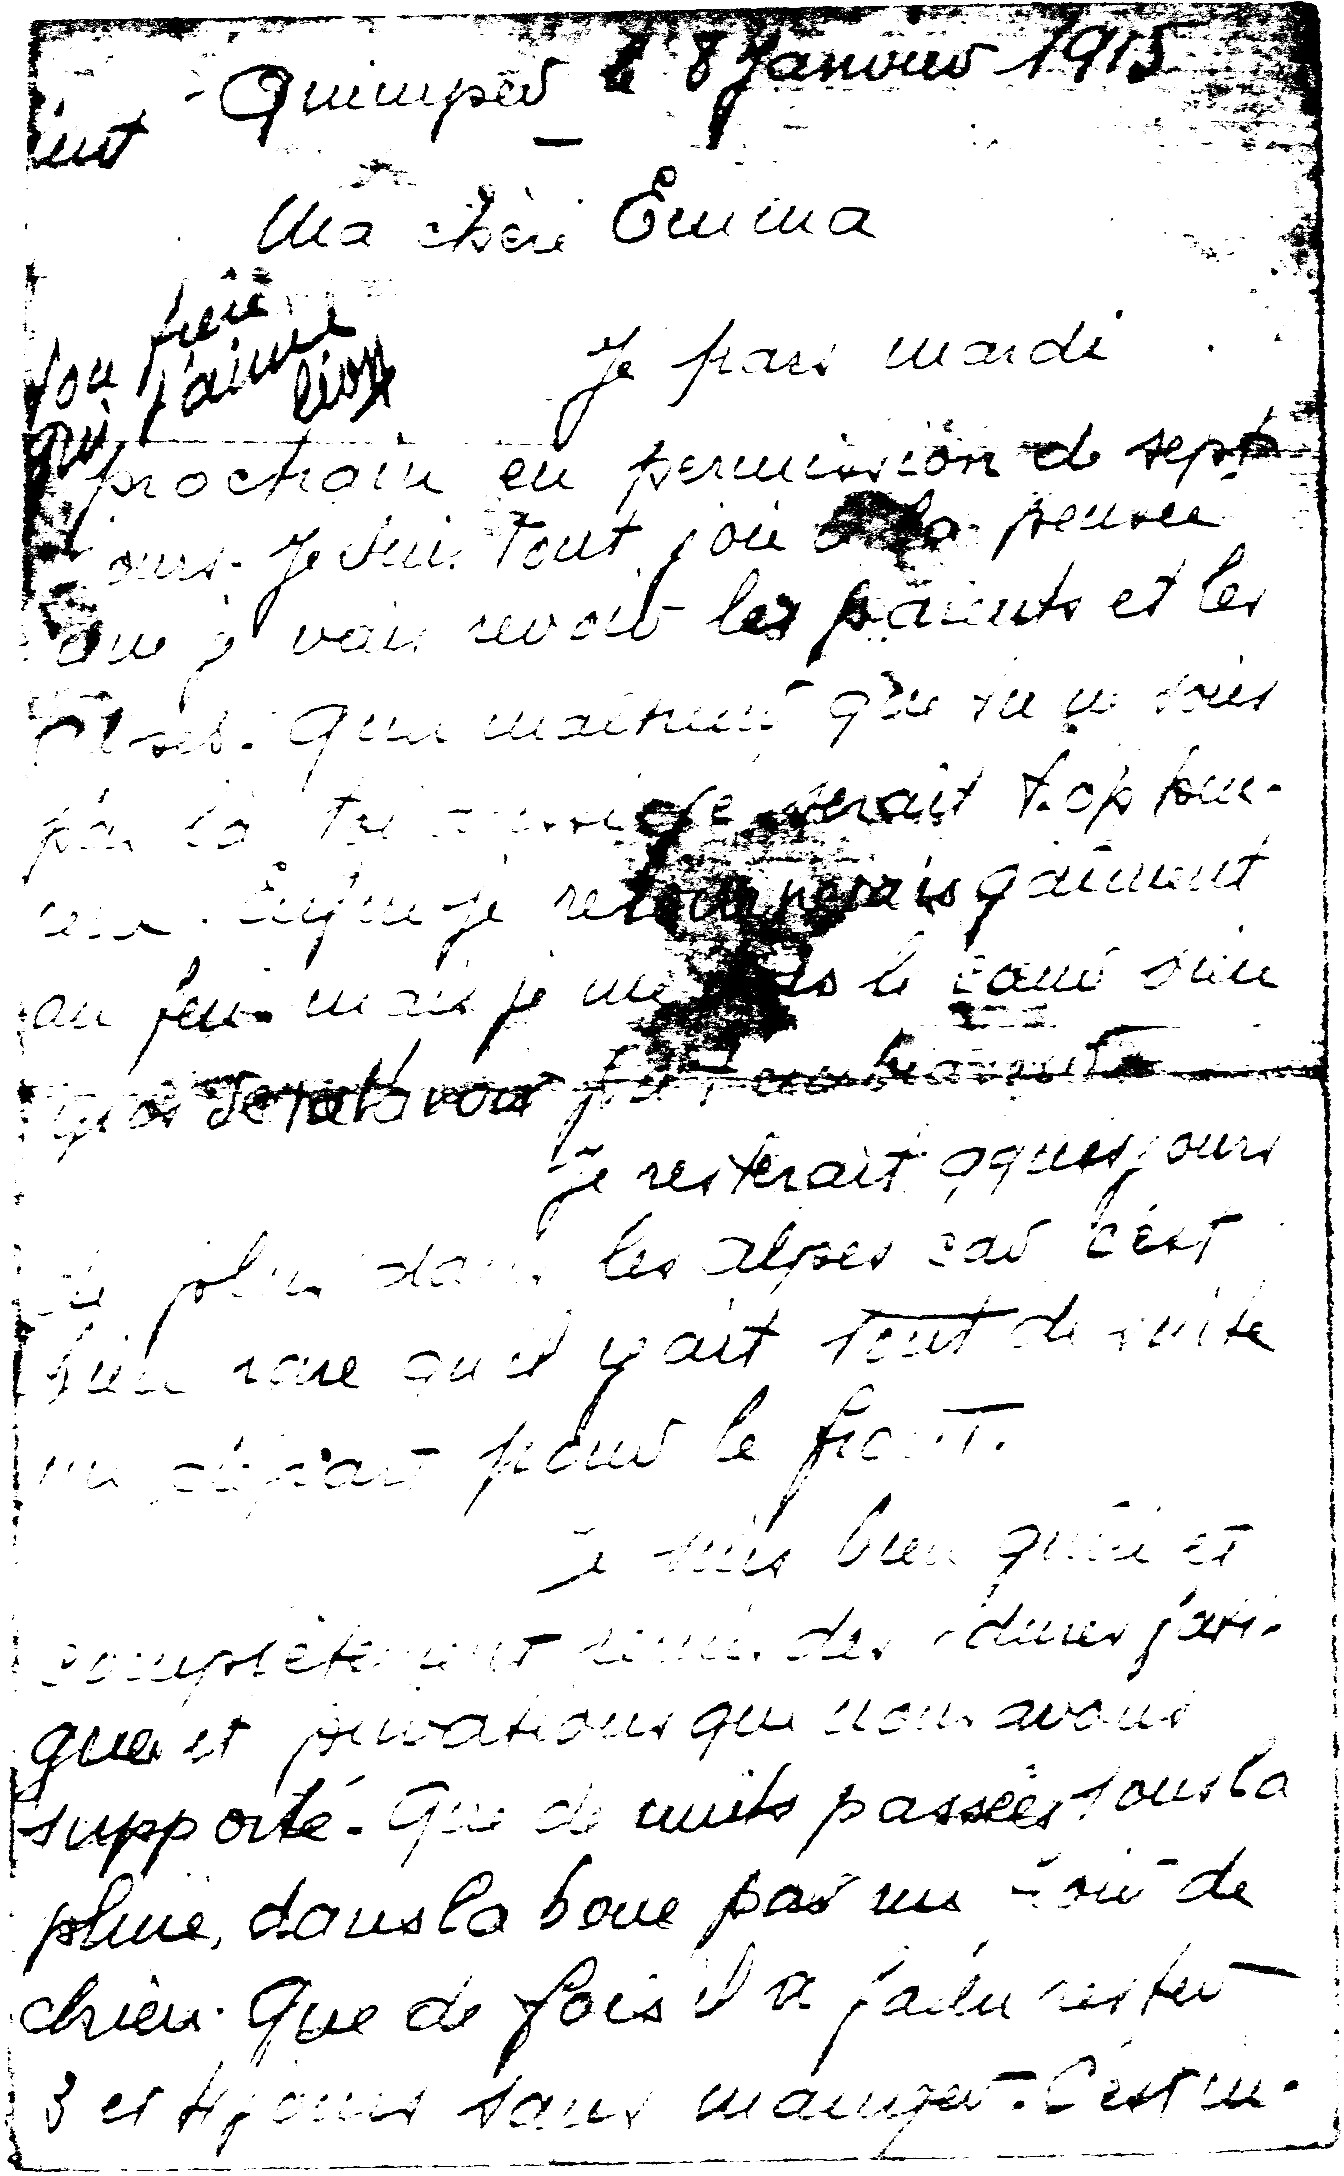 Quimper le 8 Janvier 1915
Ma chère Emma
Ton frère
qui t'aime
Je pars mardi
prochain en permission de sept
jours. Je suis tout joie à la pensée
que je vais revoir les parents et les
Quel malheur que tu ne sois
pas là toi aussi ce serait trop
Enfin je retournerais gaiment
au feu mais je me le cœur bien
gros
Je resterait qques jours
de plus dans les alpes car c'est
bien rare qu'il y ait tout de suite
un départ pour le front.
Je suis bien guéri et
complètement remis des dures fati-
gues et privations que nous avons
supporté. Que de nuits passées sous la
pluie, dans la boue par un froid de
chien. Que de fois il a fallu rester
3 et 4 jours sans manger. C'est in-